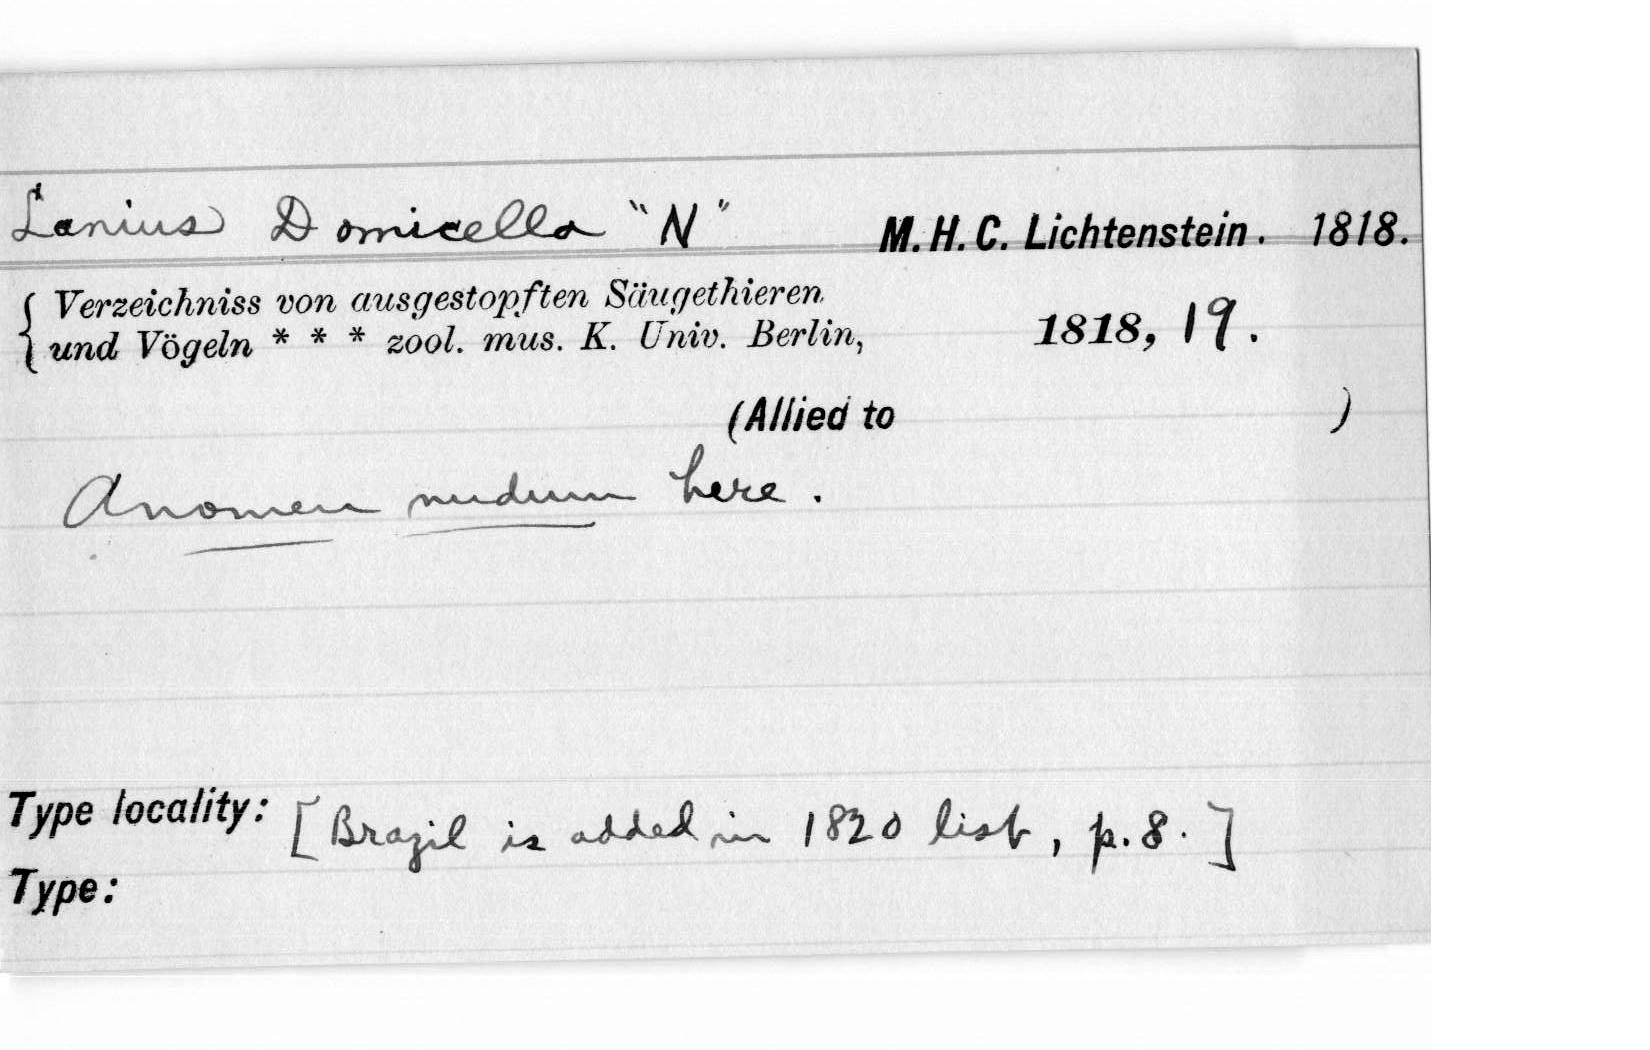 Lanius Domicella "N" M. H. C. Lichtenstein. 1818.
{ Verzeichniss von ausgestopften Säugethieren
und Vögeln * * * zool. mus. K. Univ. Berlin, 1818, 19.
(Allied to )
A nomen nudum here.
Type locality: [Brazil is added in 1820 list, p. 8.]
Type: